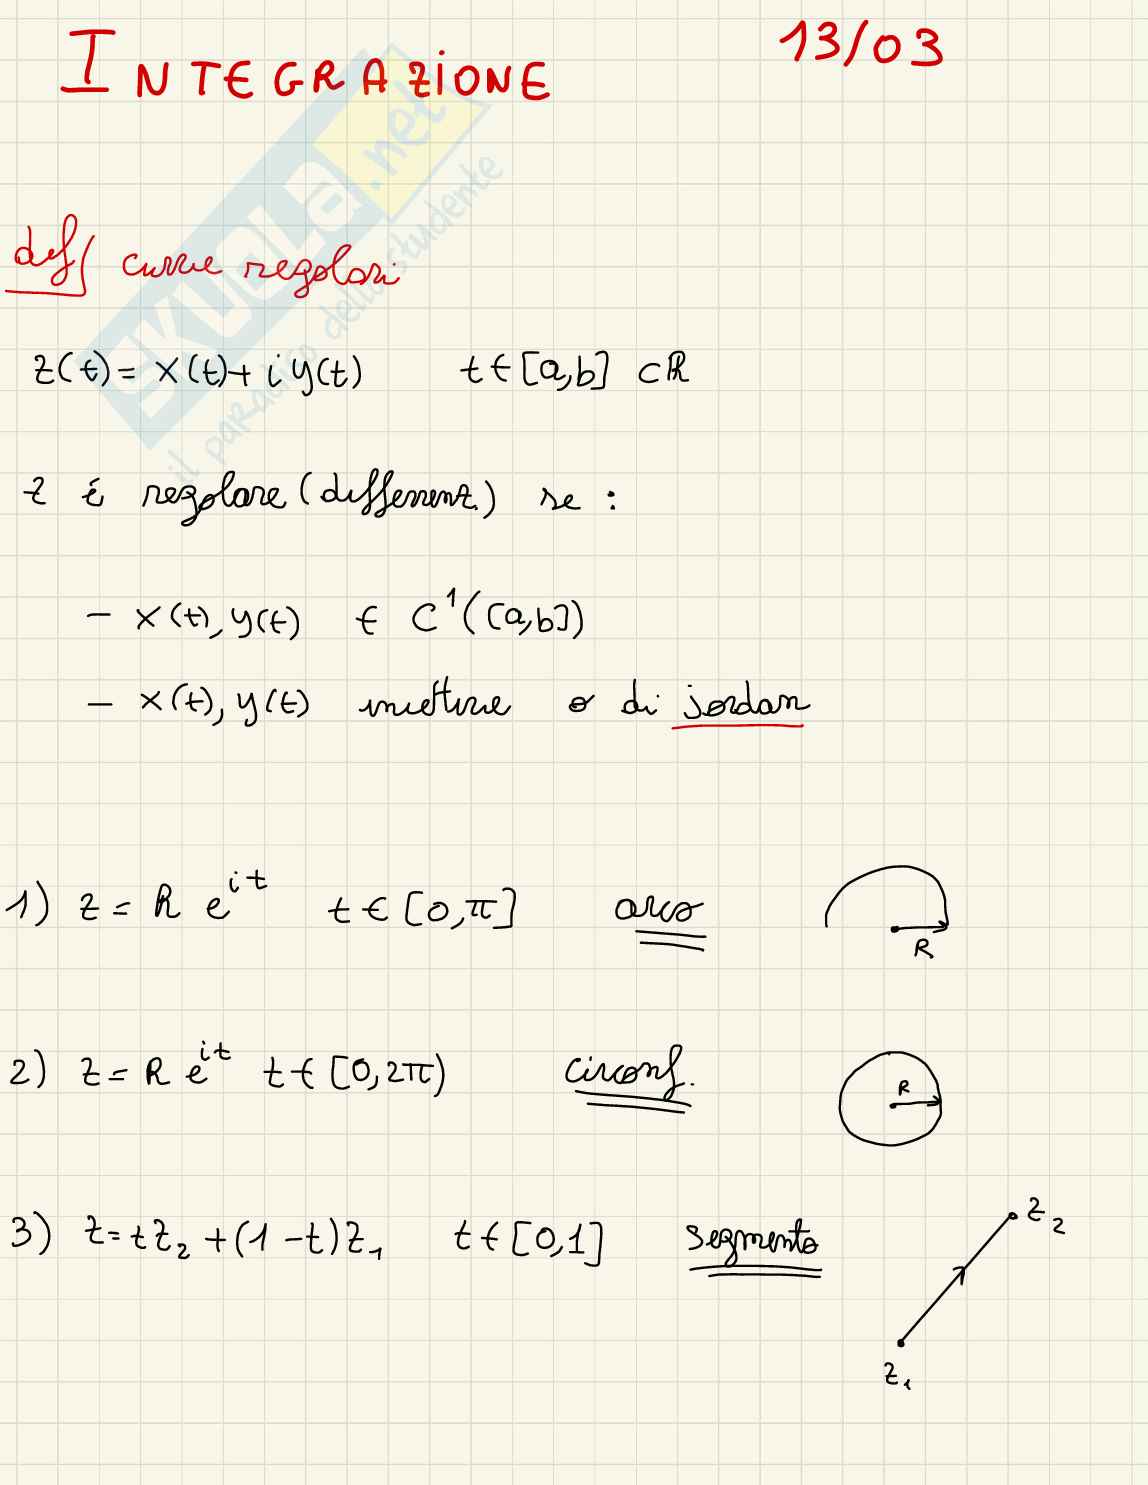 INTEGRAZIONE 13/03
SKUOLA.net
il paradiso dello studente
def curve regolari
z(t) = x(t) + i y(t) t ∈ [a,b] ⊂ ℝ
z é regolare (differenz.) se :
- x(t), y(t) ∈ C¹([a,b])
- x(t), y(t) iniettive o di jordan
1) z = R e^{it} t ∈ [0,π] arco
R
2) z = R e^{it} t ∈ [0,2π) circonf.
R
3) z = t z₂ + (1-t) z₁ t ∈ [0,1] segmento
z₂
z₁